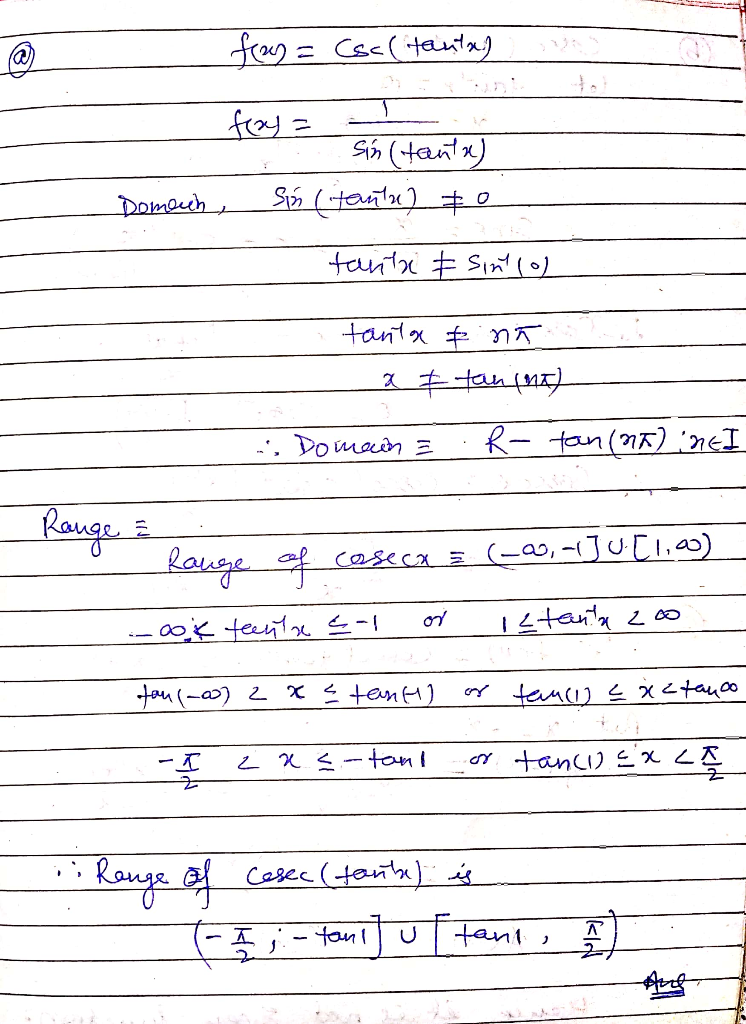 (a) f(x) = Csc(tan⁻¹x)
f(x) = 1 / Sin(tan⁻¹x)
Domain, Sin(tan⁻¹x) ≠ 0
tan⁻¹x ≠ Sin⁻¹(0)
tan⁻¹x ≠ nπ
x ≠ tan(nπ)
∴ Domain ≡ R − tan(nπ) ; n∈I
Range ≡
Range of cosecx ≡ (−∞, −1] ∪ [1, ∞)
−∞ < tan⁻¹x ≤ −1 or 1 ≤ tan⁻¹x < ∞
tan(−∞) < x ≤ tan(−1) or tan(1) ≤ x < tan∞
−π/2 < x ≤ −tan1 or tan(1) ≤ x < π/2
∴ Range of Cosec(tan⁻¹x) is
(−π/2 ; −tan1] ∪ [tan1, π/2)
Ans